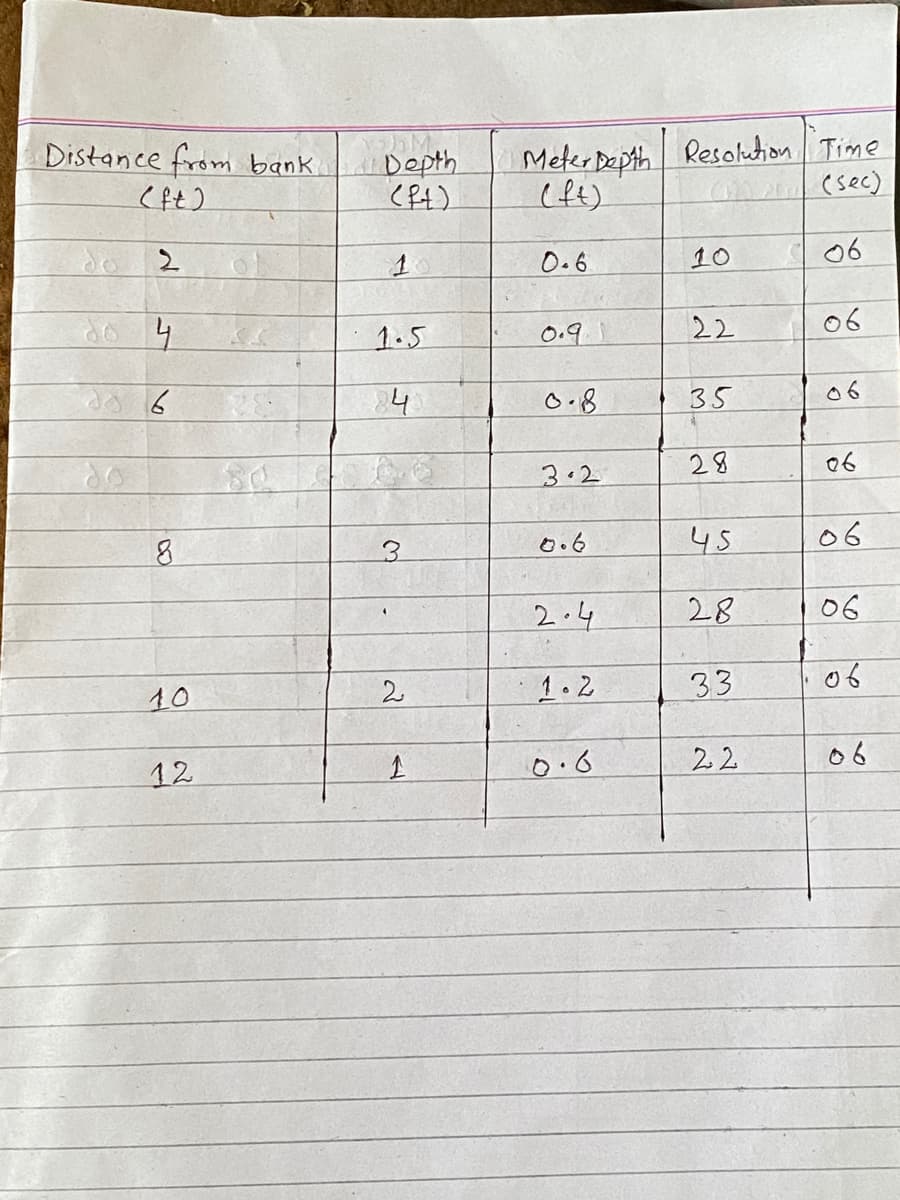 Distance from bank Depth Meter Depth Resolution Time
(ft) (ft) (ft) (sec)
2 1 0.6 10 06
4 1.5 0.9 22 06
6 4 0.8 35 06
3.2 28 06
8 3 0.6 45 06
2.4 28 06
10 2 1.2 33 06
12 1 0.6 22 06